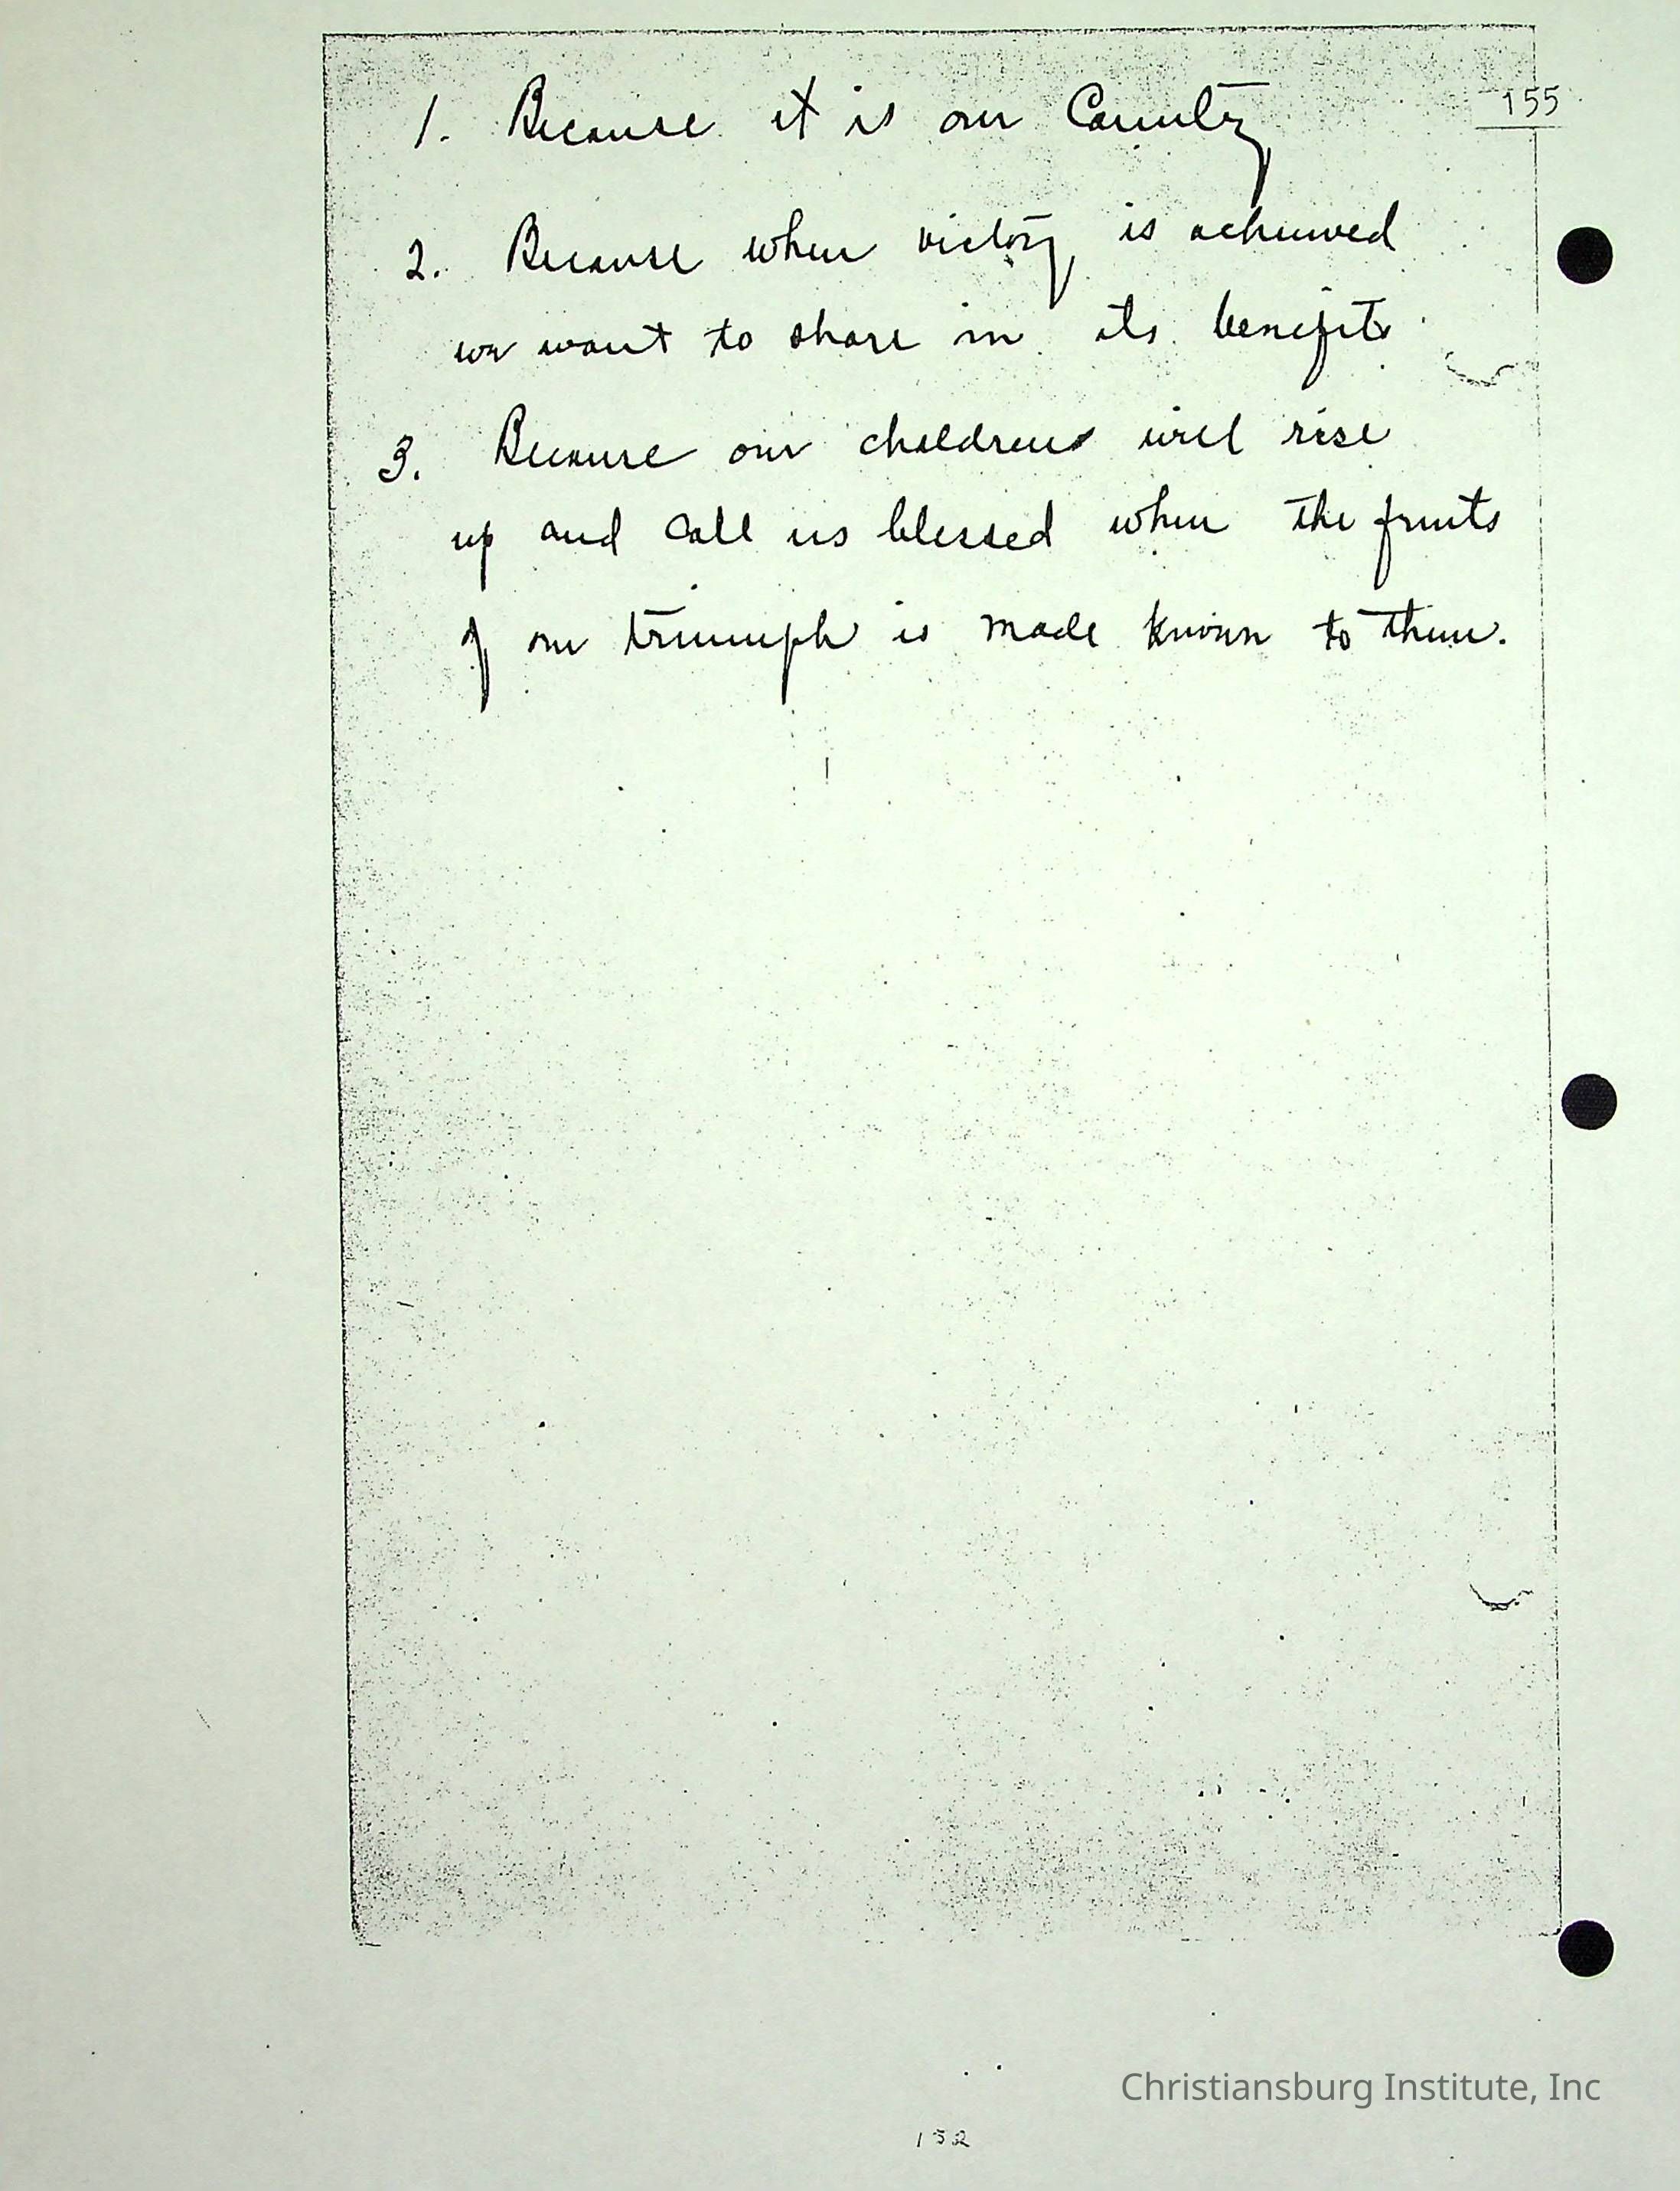 155
1. Because it is our Country
2. Because when victory is achieved
we want to share in its benefits
3. Because our childrens will rise
up and call us blessed when the fruits
of our triumph is made known to them.
Christiansburg Institute, Inc
132